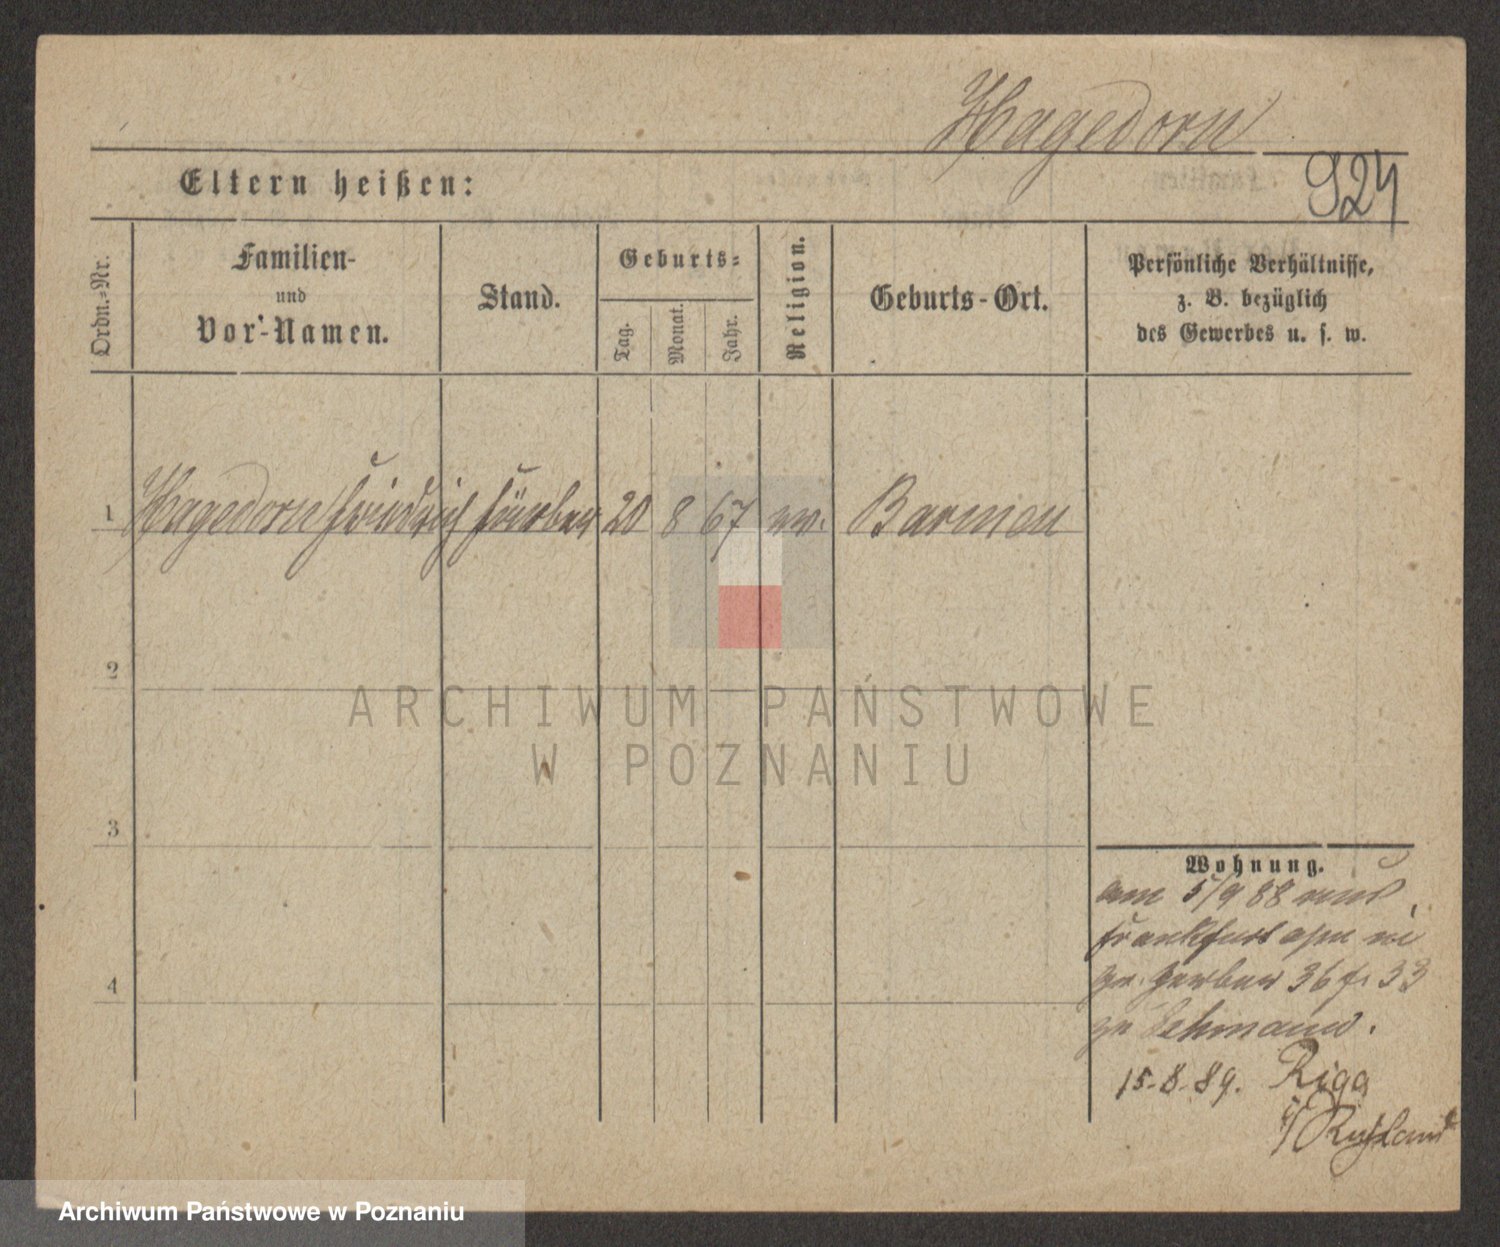 Hagedorn
924
Eltern heißen:
Ordn.=Nr.
Familien-
und
Vor-Namen.
Stand.
Geburts=
Tag.
Monat.
Jahr.
Religion.
Geburts-Ort.
Persönliche Verhältnisse,
z. B. bezüglich
des Gewerbes u. s. w.
1 Hagedorn Friedrich Färber 20 8 67 ev. Barmen
2
3
4
Wohnung.
am 5/9 88 aus
Frankfurt a/m
Gerber 36 f. 33
Lehmann.
15.8.89. Riga
i/ Rußland
ARCHIWUM PAŃSTWOWE
W POZNANIU
Archiwum Państwowe w Poznaniu